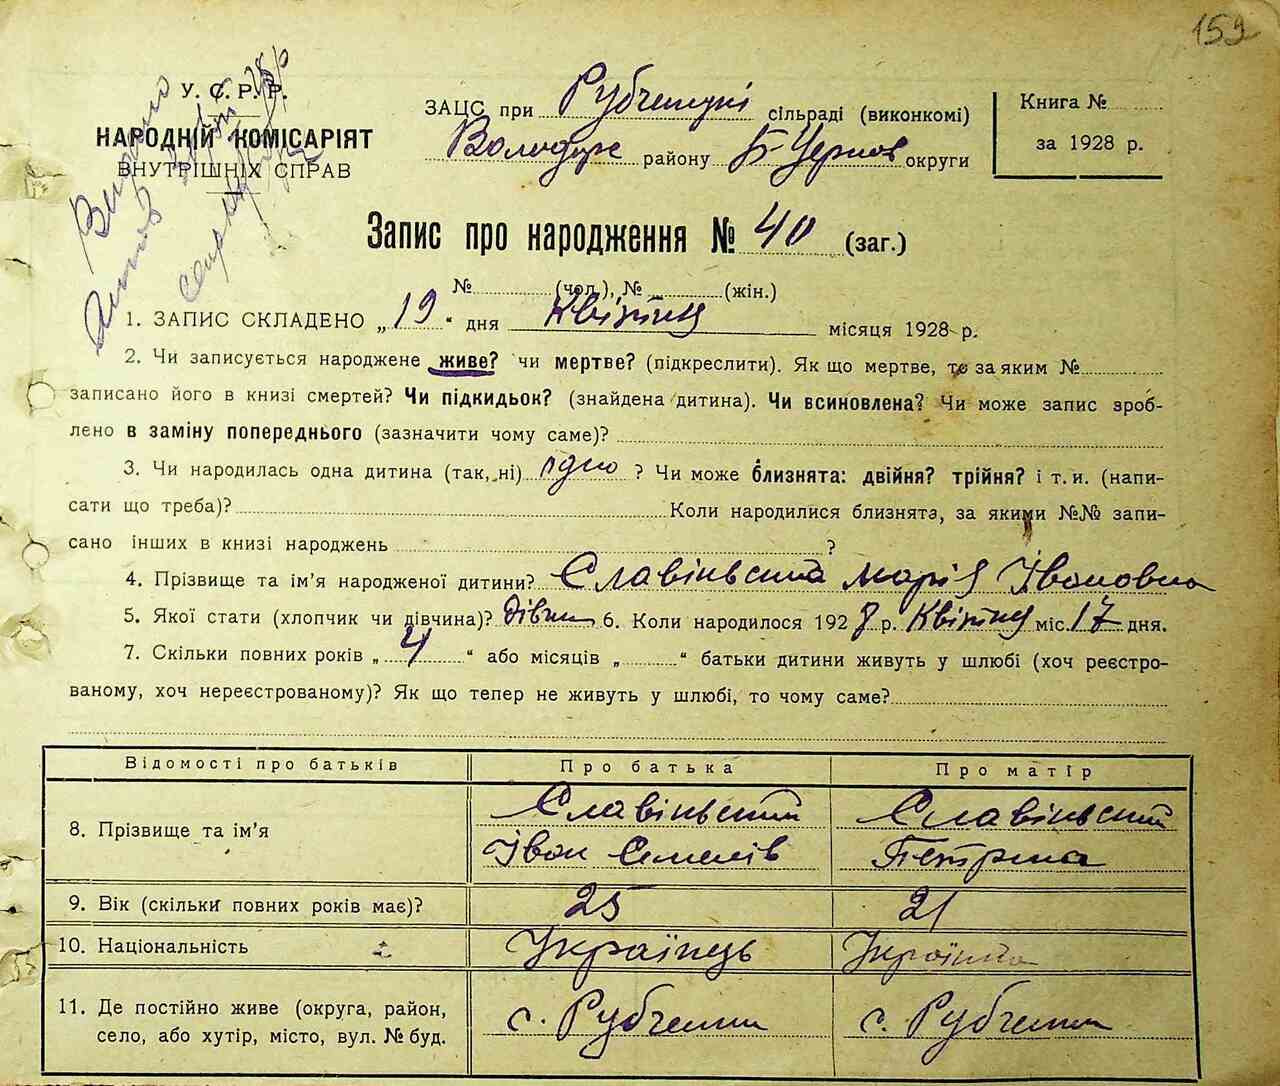 159
У. С. Р. Р.
НАРОДНІЙ КОМІСАРІЯТ
ВНУТРІШНІХ СПРАВ
Видано
ЗАЦС при Рубченці сільраді (виконкомі)
Володарс району Б-Церков округи
Книга №
за 1928 р.
Запис про народження № 40 (заг.)
№ (чол.), № (жін.)
1. ЗАПИС СКЛАДЕНО „19“ дня Квітня місяця 1928 р.
2. Чи записується народжене живе? чи мертве? (підкреслити). Як що мертве, то за яким №
записано його в книзі смертей? Чи підкидьок? (знайдена дитина). Чи всиновлена? Чи може запис зроб-
лено в заміну попереднього (зазначити чому саме)?
3. Чи народилась одна дитина (так, ні) одно ? Чи може близнята: двійня? трійня? і т. и. (напи-
сати що треба)? Коли народилися близнята, за якими №№ запи-
сано інших в книзі народжень ?
4. Прізвище та ім’я народженої дитини? Славінська Марія Івановна
5. Якої стати (хлопчик чи дівчина)? дівчин 6. Коли народилося 1928 р. Квітня міс. 17 дня.
7. Скільки повних років „4“ або місяців „ “ батьки дитини живуть у шлюбі (хоч реєстро-
ваному, хоч нереєстрованому)? Як що тепер не живуть у шлюбі, то чому саме?
Відомості про батьків Про батька Про матір
8. Прізвище та ім’я Славінський Славінський
Іван Семенів
9. Вік (скільки повних років має)? 25 21
10. Національність Українець Українка
11. Де постійно живе (округа, район,
село, або хутір, місто, вул. № буд.
с. Рубченки с. Рубченки